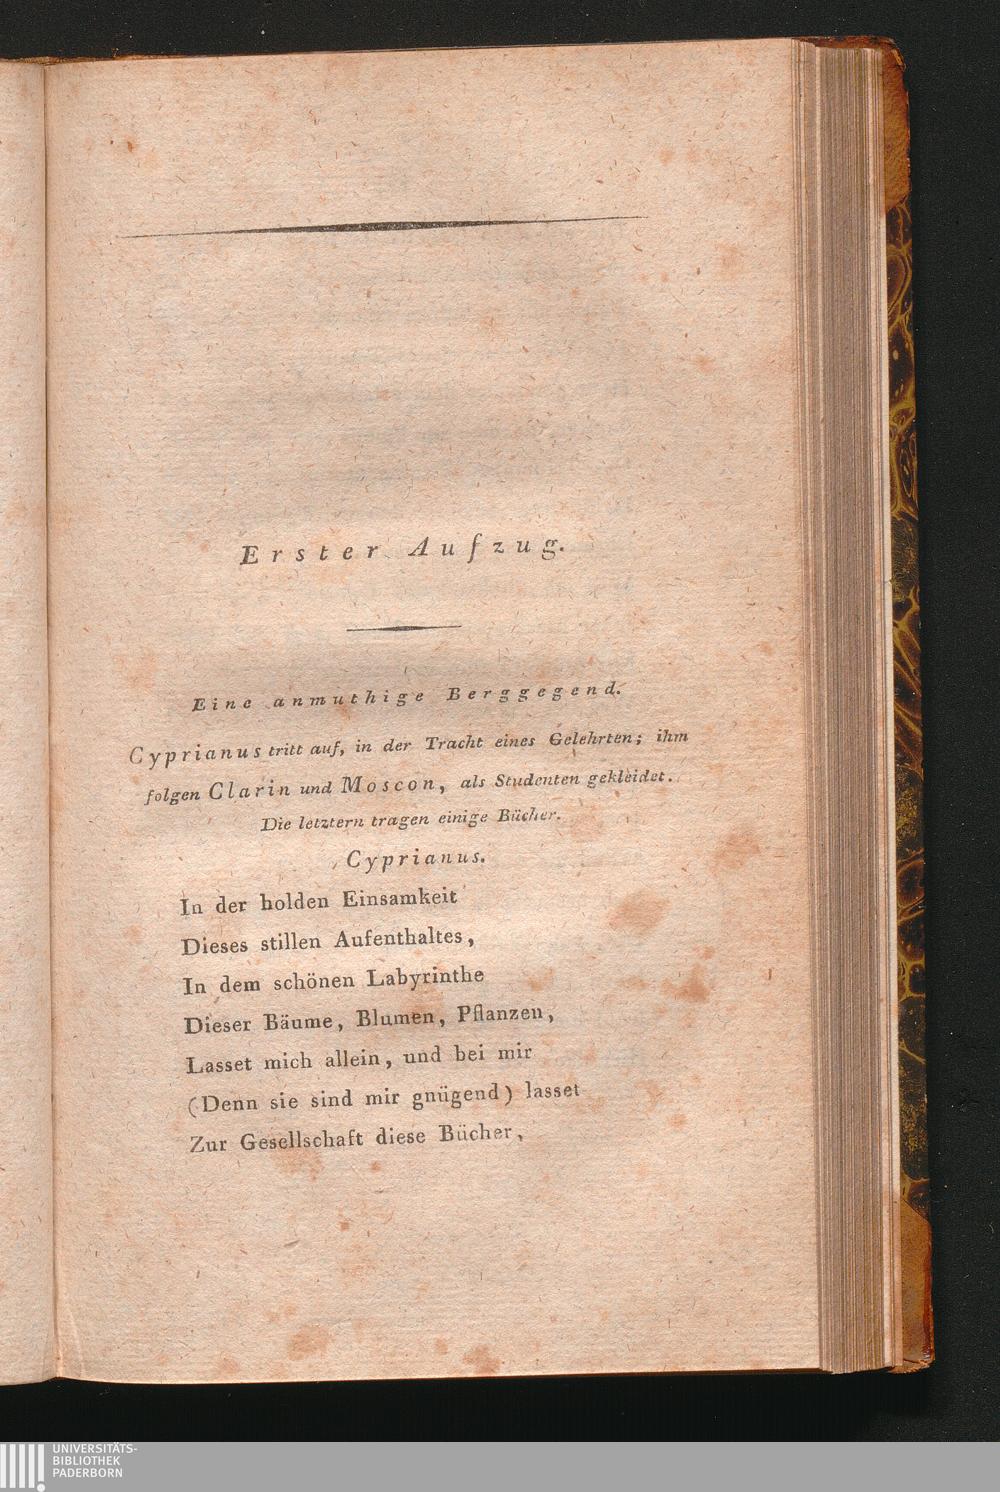 Erster Aufzug.
Eine anmuthige Berggegend.
Cyprianus tritt auf, in der Tracht eines Gelehrten; ihm
folgen Clarin und Moscon, als Studenten gekleidet.
Die letztern tragen einige Bücher.
Cyprianus.
In der holden Einsamkeit
Dieses stillen Aufenthaltes,
In dem schönen Labyrinthe
Dieser Bäume, Blumen, Pflanzen,
Lasset mich allein, und bei mir
(Denn sie sind mir gnügend) lasset
Zur Gesellschaft diese Bücher,
UNIVERSITÄTS-
BIBLIOTHEK
PADERBORN